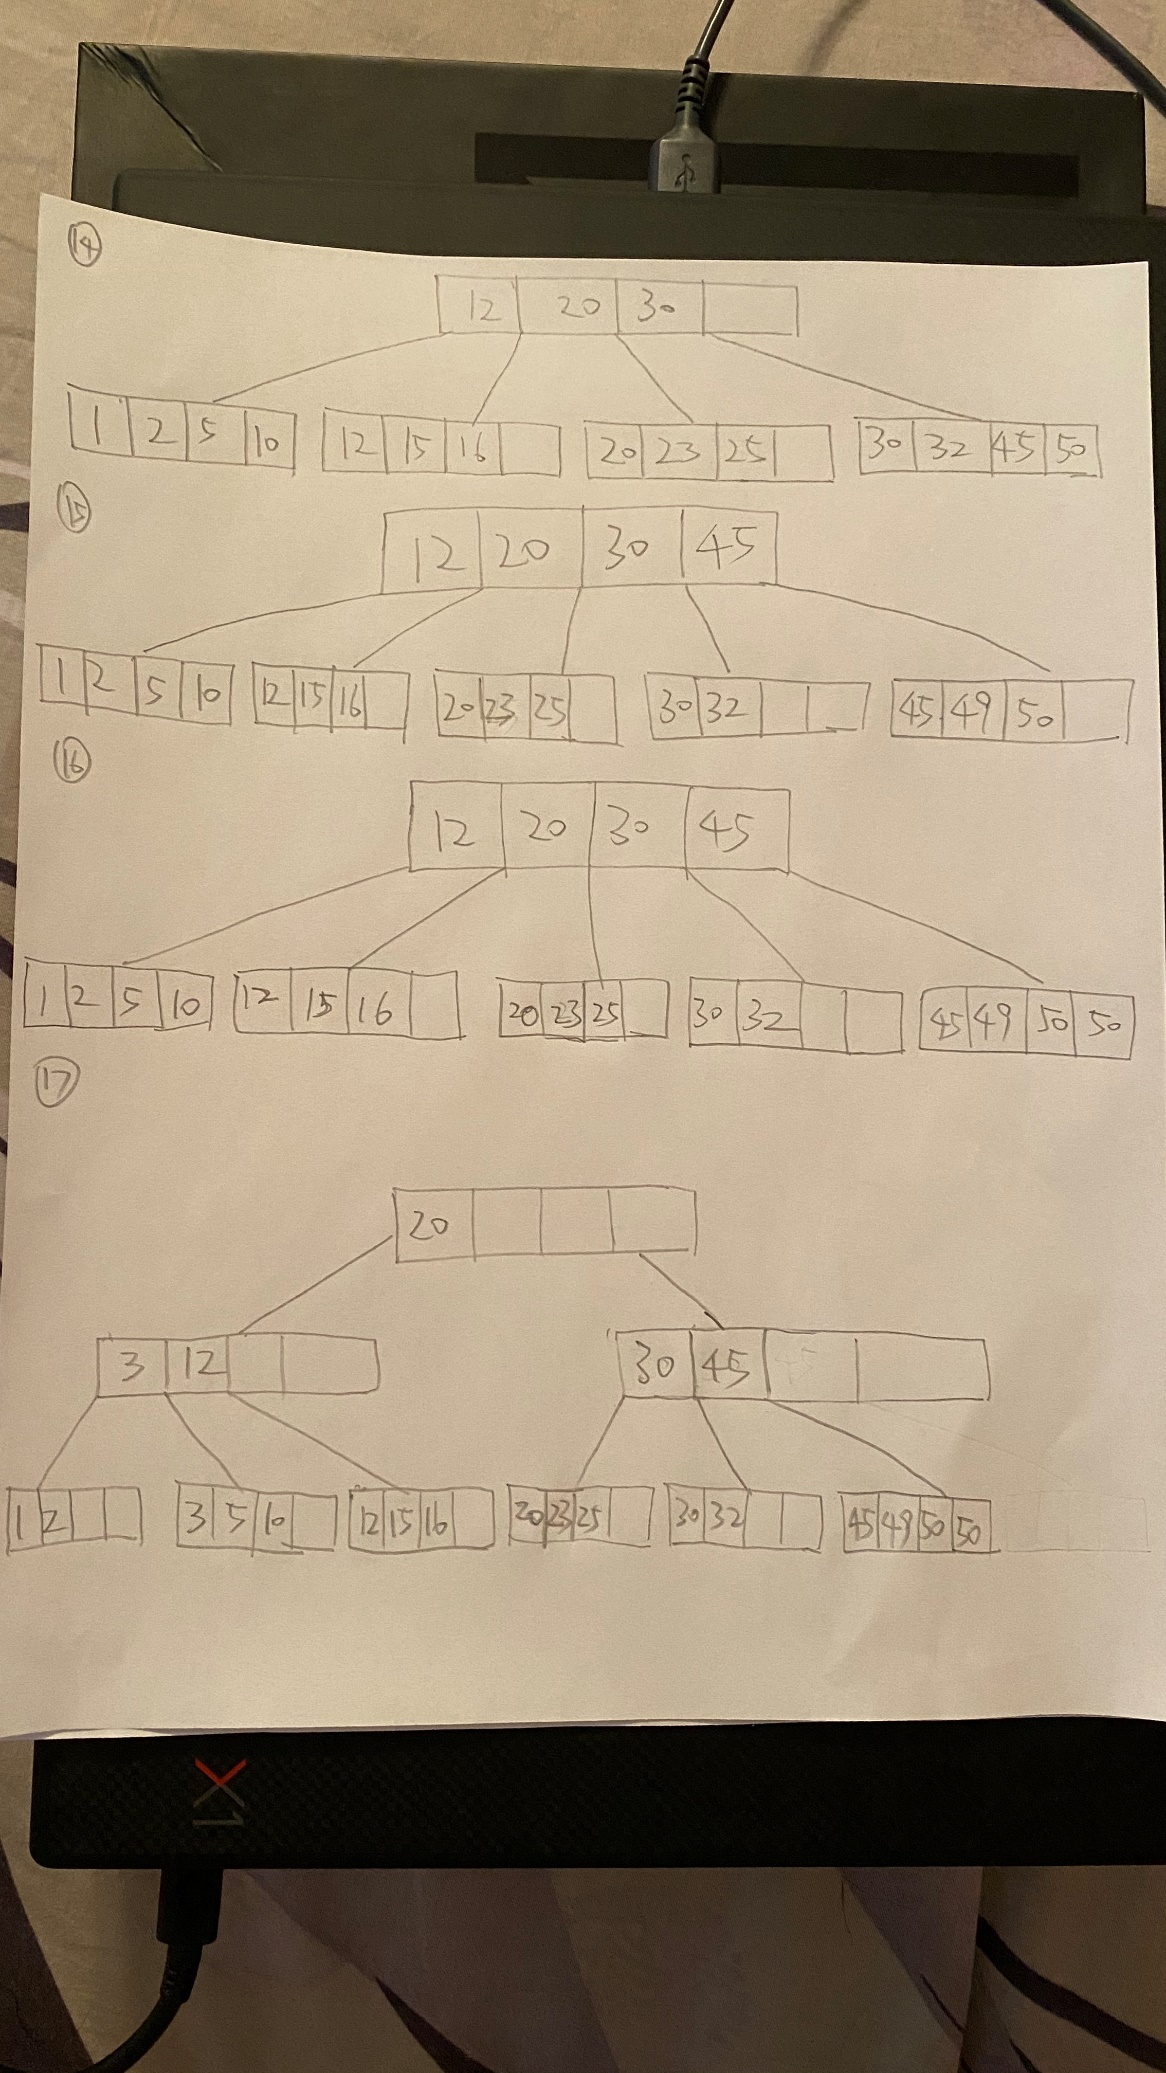 ⑭
12 20 30
1 2 5 10 12 15 16 20 23 25 30 32 45 50
⑮
12 20 30 45
1 2 5 10 12 15 16 20 23 25 30 32 45 49 50
⑯
12 20 30 45
1 2 5 10 12 15 16 20 23 25 30 32 45 49 50 50
⑰
20
3 12 30 45
1 2 3 5 10 12 15 16 20 23 25 30 32 45 49 50 50
X1